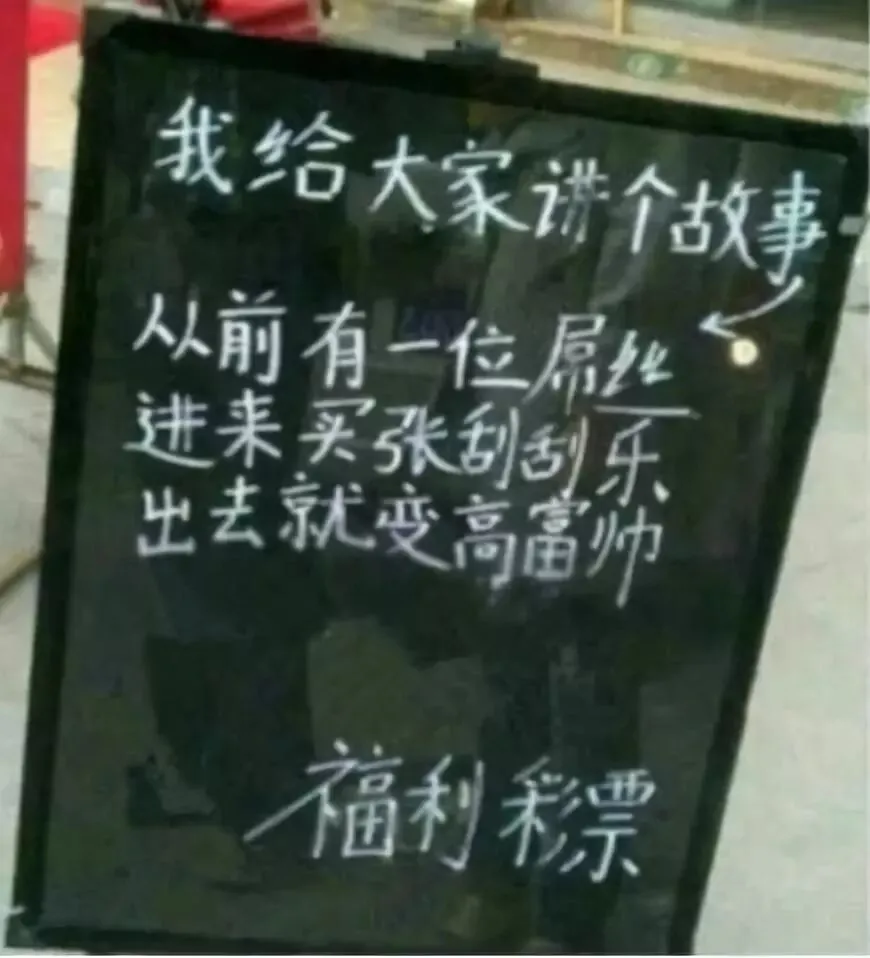 我给大家讲个故事
从前有一位屌丝
进来买张刮刮乐
出去就变高富帅
福利彩票